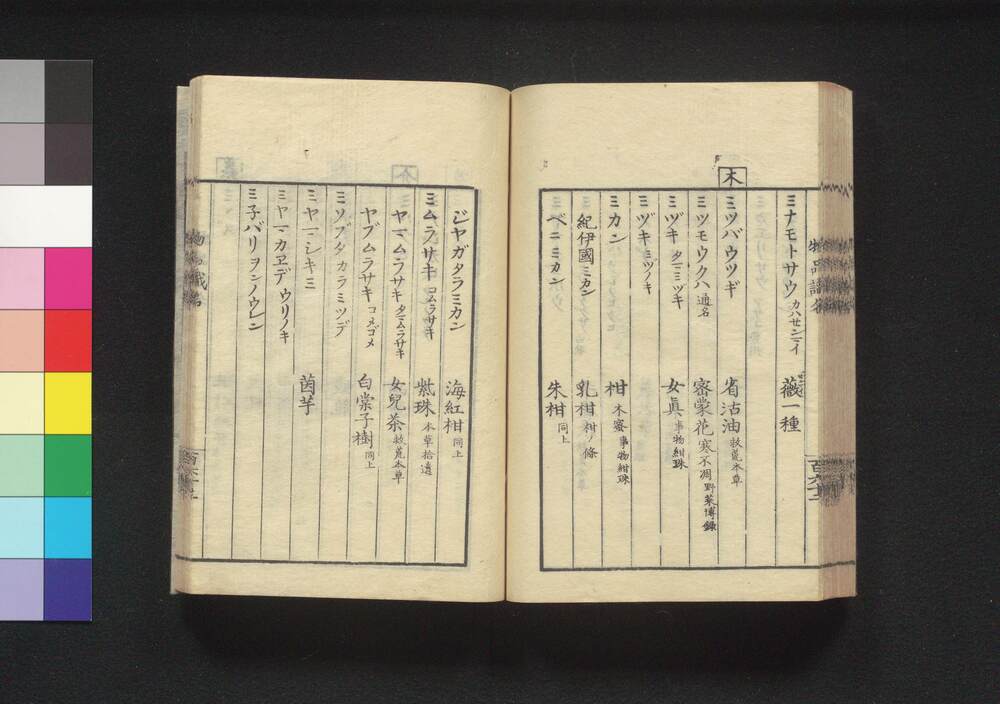 ミナモトサウ カハセンニイ 薇一種
木
ミツバウツギ 省沽油 救荒本草
ミツモウクハ 通名 密蒙花 寒不凋 野菜博錄
ミヅキ タニミヅキ 女眞 事物紺珠
ミヅキ ミヅノキ
ミカン 柑 木蜜 事物紺珠
紀伊國ミカン 乳柑 柑ノ條
ベニミカン 朱柑 同上
ジヤガタラミカン 海紅柑 同上
ミムラサキ コムラサキ 紫珠 本草拾遺
ヤマムラサキ タマムラサキ 女兒茶 救荒本草
ヤブムラサキ コメゴメ 白棠子樹 同上
ミソブタ カラミツデ
ミヤマシキミ 茵芋
ミヤマカヱデ ウリノキ
ミ子バリ ヲンノウレン